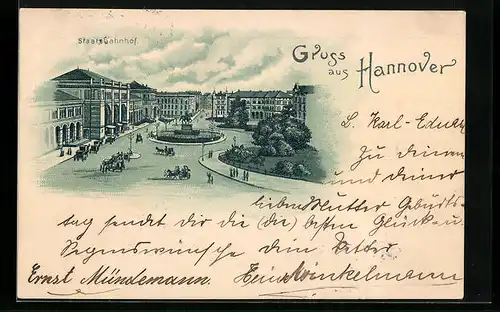 Staatsbahnhof.
Gruss
aus Hannover
L. Karl-Eduard
Zu deinem
und deiner
lieben Mutter Geburts-
tag sendet dir die (die) besten Glück u.
Segenswünsche dein Vetter
Ernst Mündemann. Heini Winkelmann